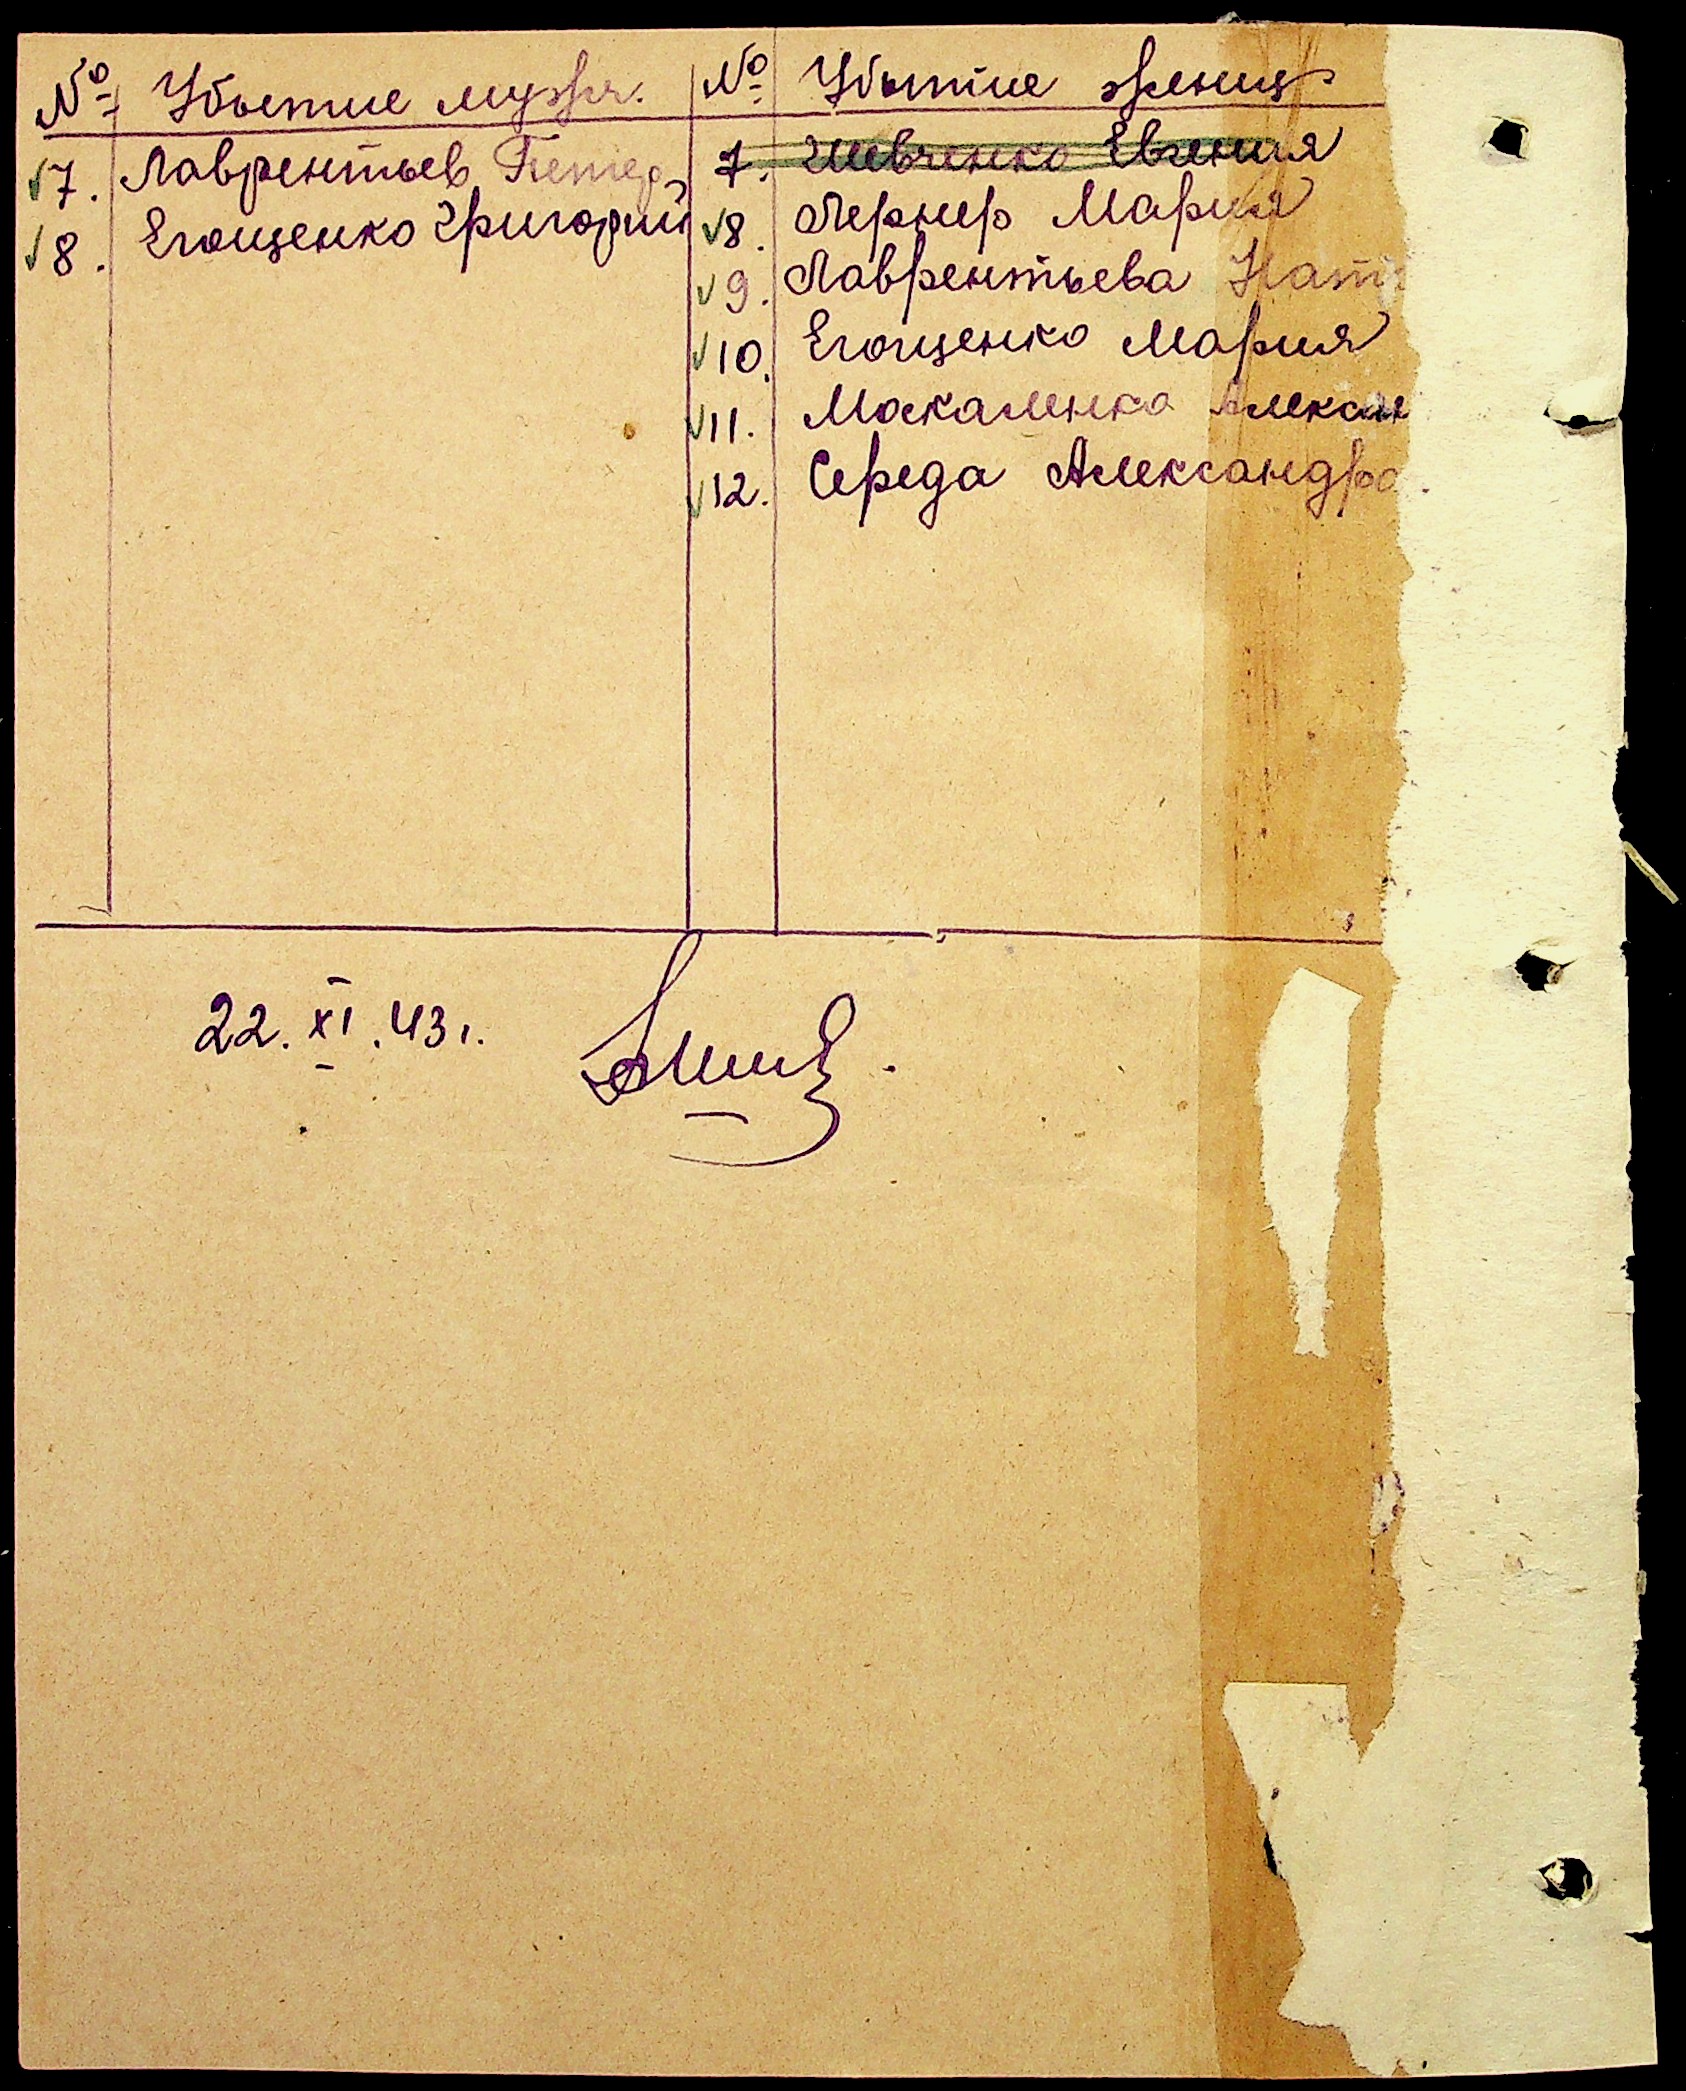 № Убытие мужч. № Убытие женщ
7. Лаврентьев Петер 7. Шевченко Евгения
8. Егощенко Григорий 8. Лернер Мария
9. Лаврентьева Нат
10. Егощенко Мария
11. Макаленко Алексан
12. Середа Александра.
22.XI.43г.